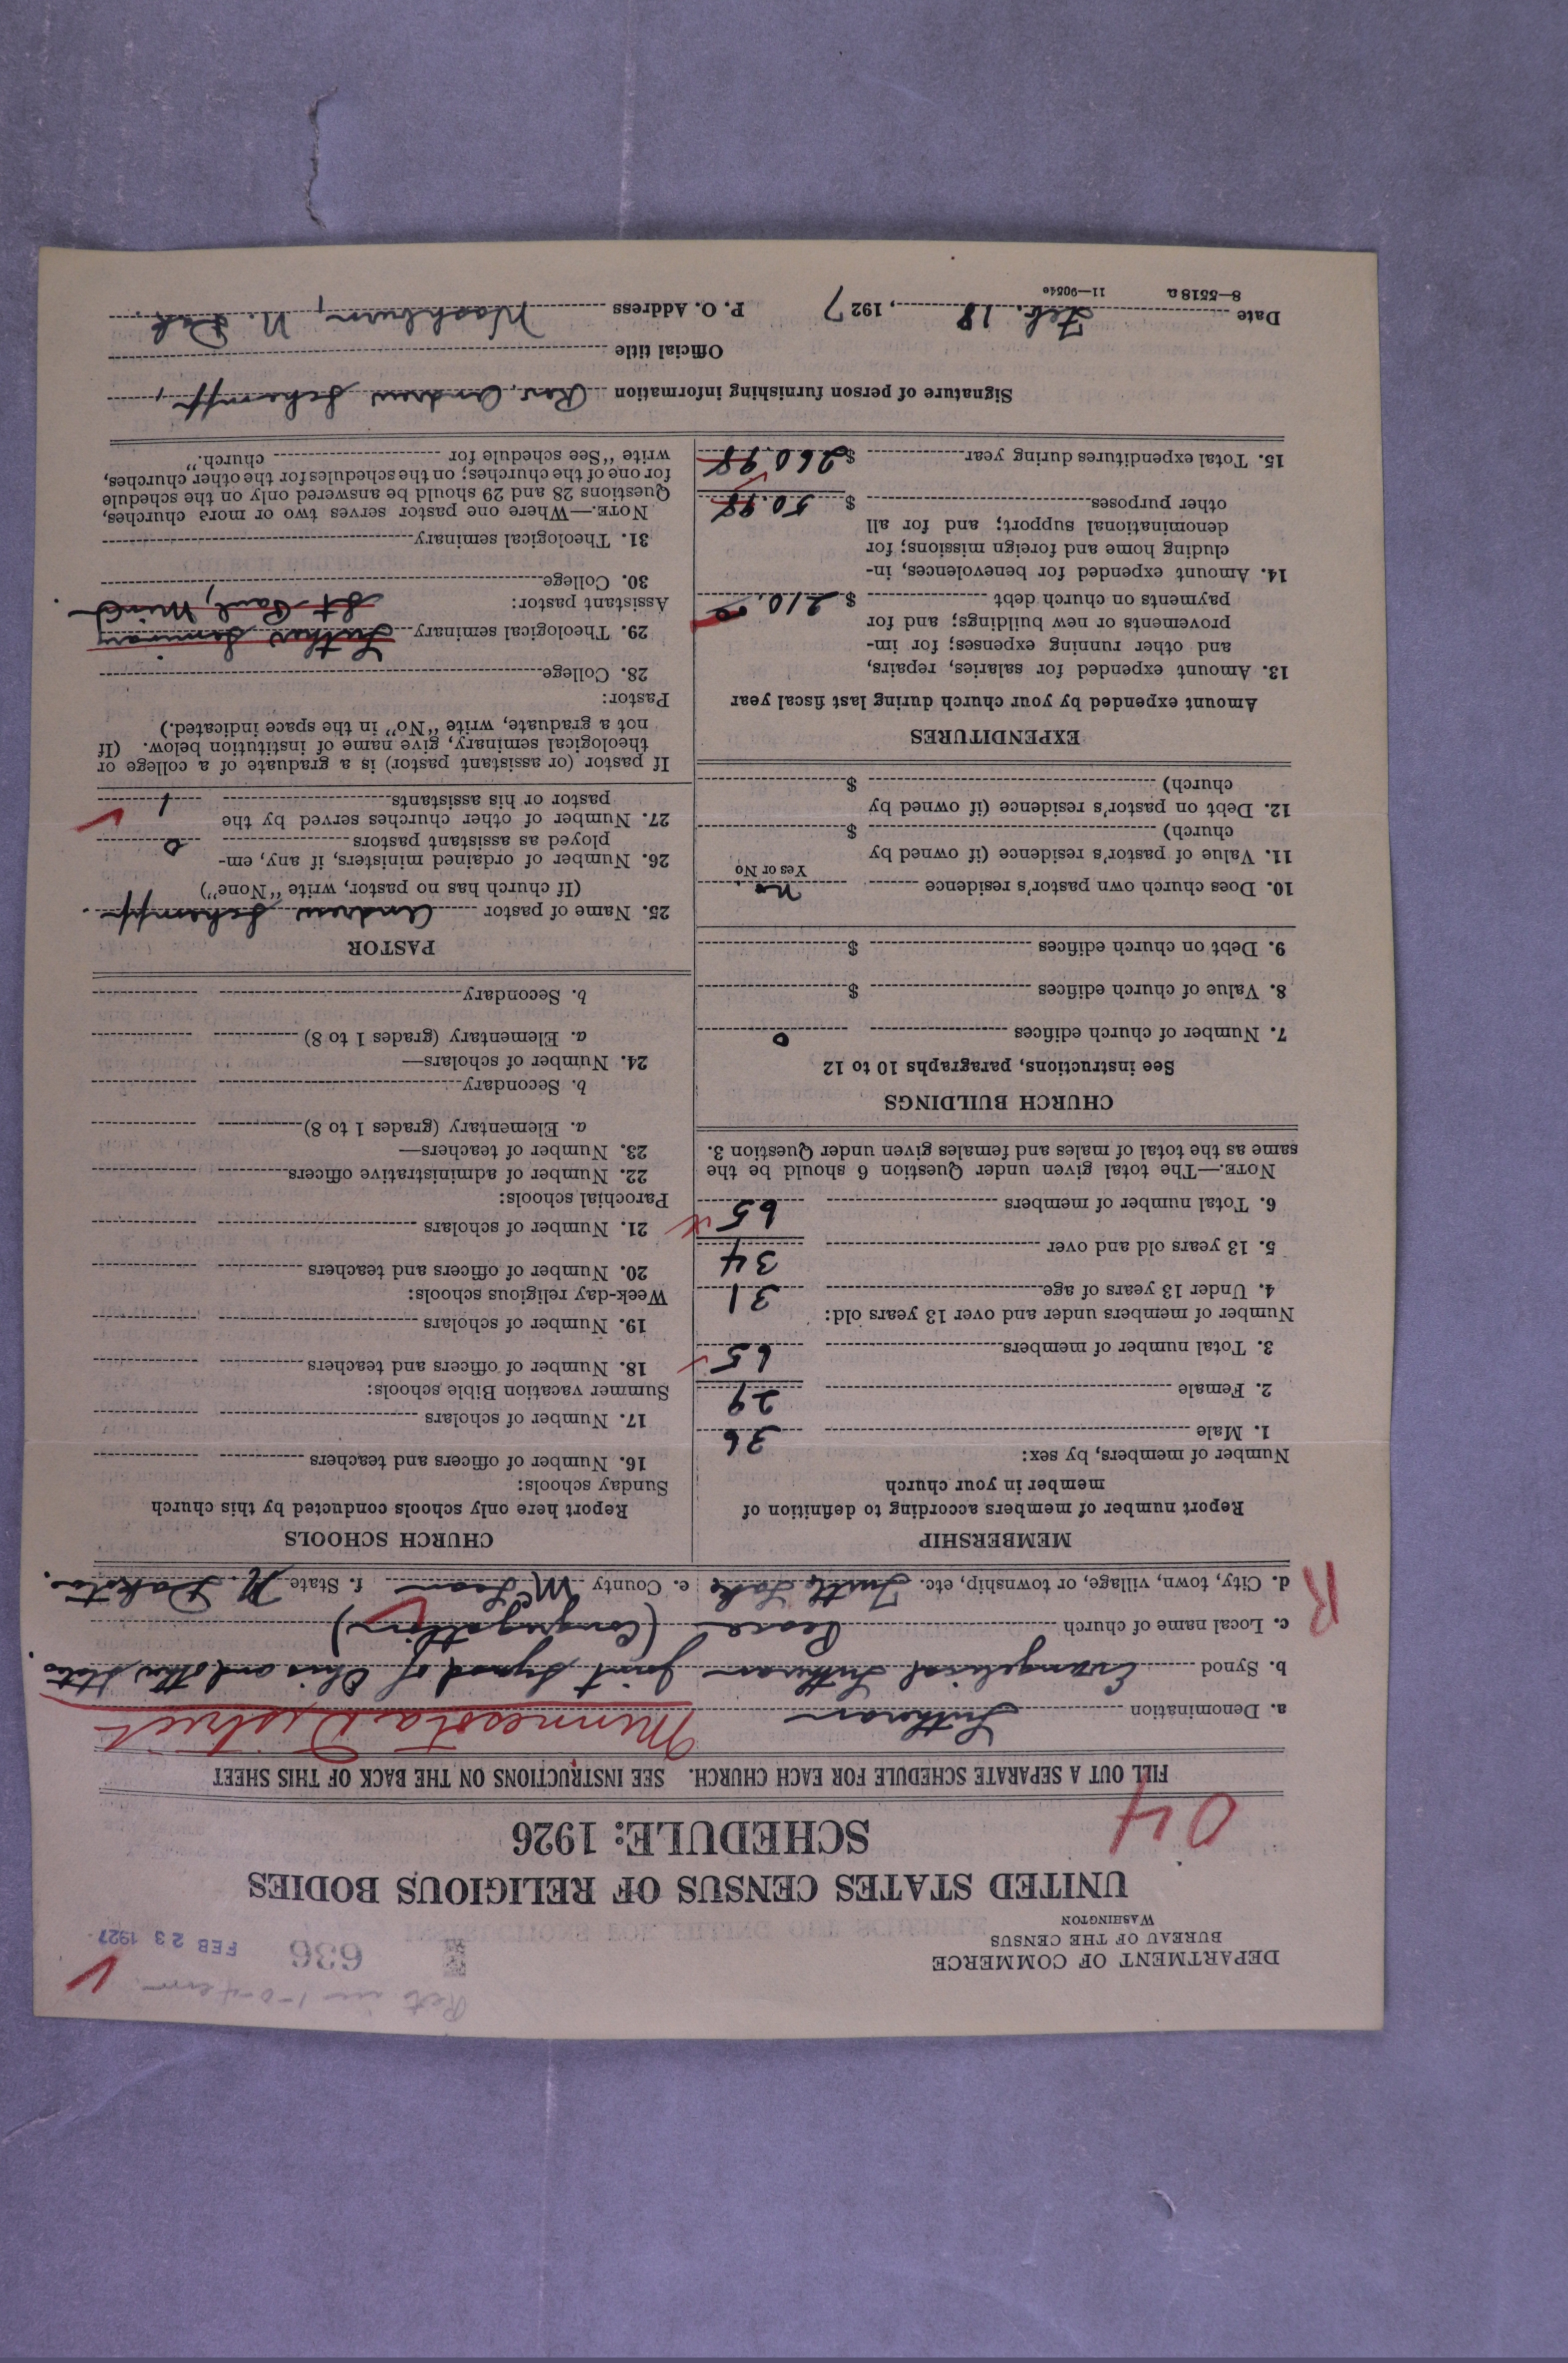 Rets in 1-0-4
636 FEB 23 1927
DEPARTMENT OF COMMERCE
BUREAU OF THE CENSUS
WASHINGTON
UNITED STATES CENSUS OF RELIGIOUS BODIES
SCHEDULE: 1926
04
FILL OUT A SEPARATE SCHEDULE FOR EACH CHURCH. SEE INSTRUCTIONS ON THE BACK OF THIS SHEET
a. Denomination Lutheran Minnesota District
b. Synod Evangelical Lutheran Joint Synod of Ohio and other States.
c. Local name of church Peace (Congregation)
R
d. City, town, village, or township, etc. Turtle Lake e. County McLean f. State N. Dakota.
MEMBERSHIP
Report number of members according to definition of
member in your church
Number of members, by sex:
1. Male 36
2. Female 29
3. Total number of members 65
Number of members under and over 13 years old:
4. Under 13 years of age 31
5. 13 years old and over 34
6. Total number of members 65
NOTE.—The total given under Question 6 should be the
same as the total of males and females given under Question 3.
CHURCH BUILDINGS
See instructions, paragraphs 10 to 12
7. Number of church edifices 0
8. Value of church edifices $
9. Debt on church edifices $
10. Does church own pastor's residence No.
Yes or No
11. Value of pastor's residence (if owned by
church) $
12. Debt on pastor's residence (if owned by
church) $
EXPENDITURES
Amount expended by your church during last fiscal year
13. Amount expended for salaries, repairs,
and other running expenses; for im-
provements or new buildings; and for
payments on church debt $ 210.00
14. Amount expended for benevolences, in-
cluding home and foreign missions; for
denominational support; and for all
other purposes $ 50.98
15. Total expenditures during year $ 260.98
CHURCH SCHOOLS
Report here only schools conducted by this church
Sunday schools:
16. Number of officers and teachers
17. Number of scholars
Summer vacation Bible schools:
18. Number of officers and teachers
19. Number of scholars
Week-day religious schools:
20. Number of officers and teachers
21. Number of scholars
Parochial schools:
22. Number of administrative officers
23. Number of teachers—
a. Elementary (grades 1 to 8)
b. Secondary
24. Number of scholars—
a. Elementary (grades 1 to 8)
b. Secondary
PASTOR
25. Name of pastor Andrew Schempf.
(If church has no pastor, write "None")
26. Number of ordained ministers, if any, em-
ployed as assistant pastors 0
27. Number of other churches served by the
pastor or his assistants 1
If pastor (or assistant pastor) is a graduate of a college or
theological seminary, give name of institution below. (If
not a graduate, write "No" in the space indicated.)
Pastor:
28. College
29. Theological seminary Luther Seminary
St Paul, Minn.
Assistant pastor:
30. College
31. Theological seminary
NOTE.—Where one pastor serves two or more churches,
Questions 28 and 29 should be answered only on the schedule
for one of the churches; on the schedules for the other churches,
write "See schedule for church."
Signature of person furnishing information Rev. Andrew Schempf,
Official title
Date Feb. 18, 1927 P. O. Address Washburn, N. Dak.
8—5518 a 11—9054e